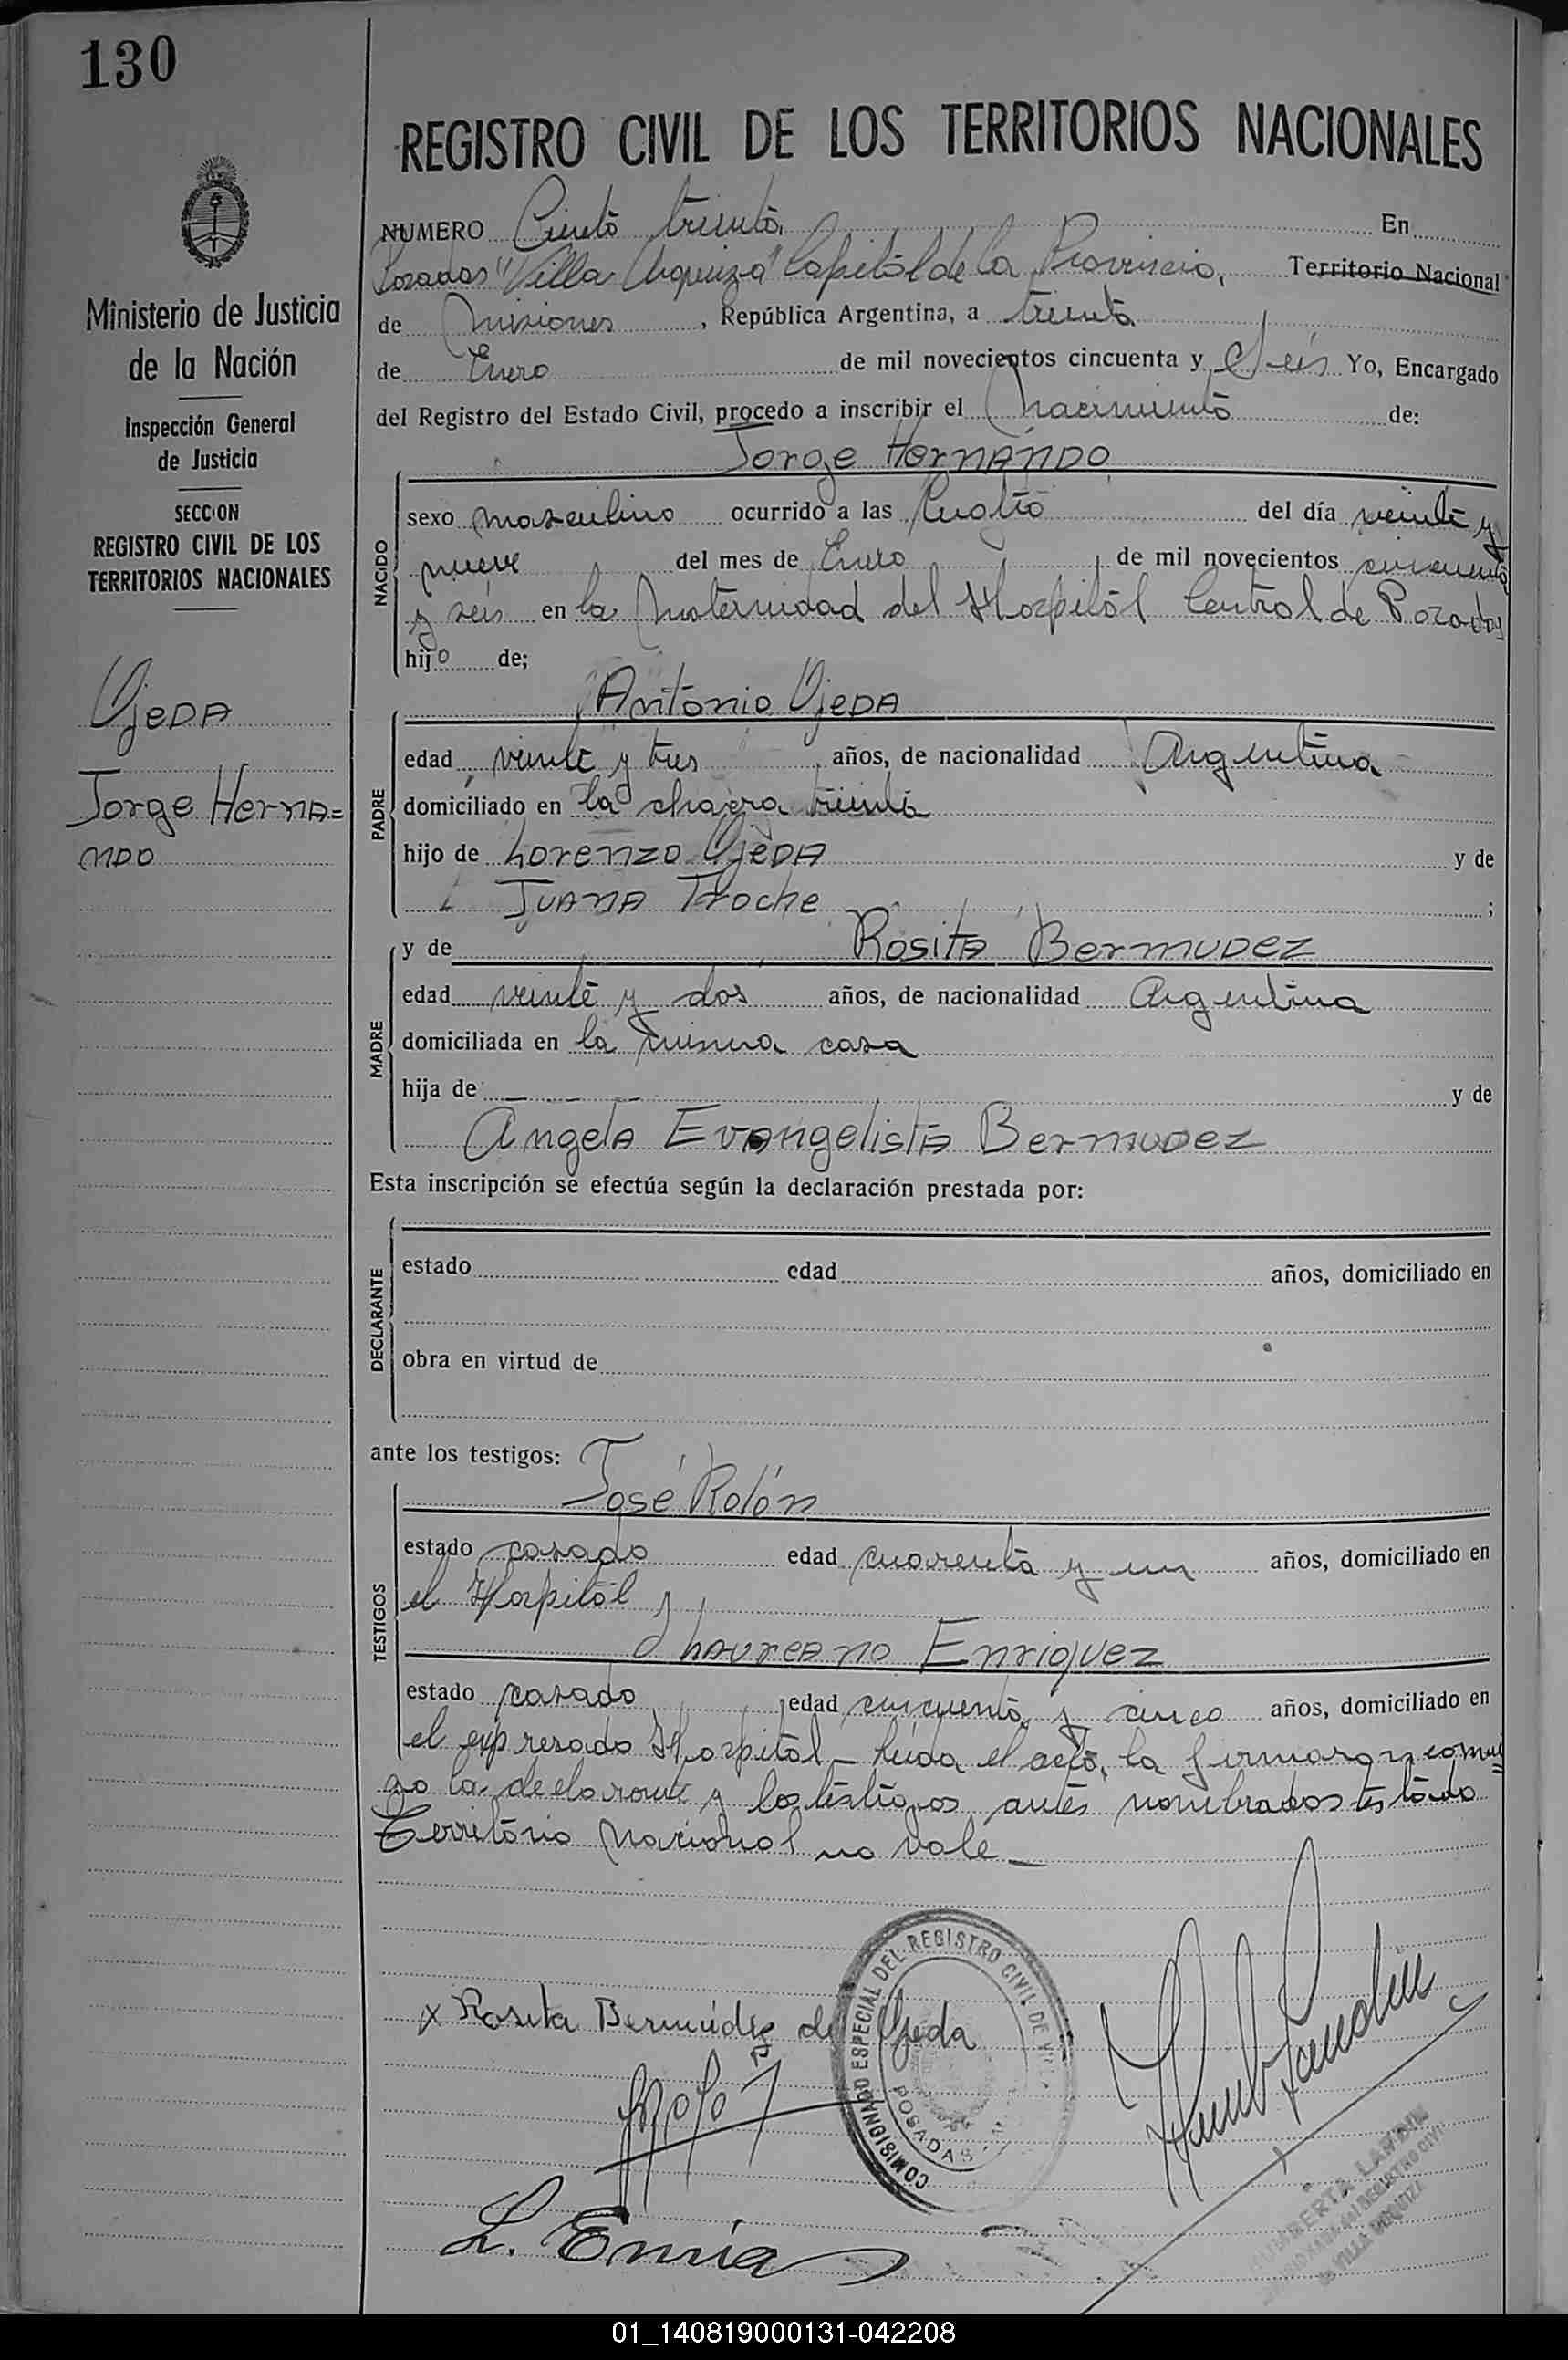 130
REGISTRO CIVIL DE LOS TERRITORIOS NACIONALES
Ministerio de Justicia
de la Nación
Inspección General
de Justicia
SECCION
REGISTRO CIVIL DE LOS
TERRITORIOS NACIONALES
Ojeda
Jorge Herna=
ndo
NUMERO Ciento treinta En
Posadas "Villa Urquiza" Capital de la Provincia, Territorio Nacional
de Misiones, República Argentina, a treinta
de Enero de mil novecientos cincuenta y Seis Yo, Encargado
del Registro del Estado Civil, procedo a inscribir el Nacimiento de:
Jorge Hernando
NACIDO
sexo masculino ocurrido a las Cuatro del día veinte y
nueve del mes de Enero de mil novecientos cincuenta
y seis en la Maternidad del Hospital Central de Posadas
hijo de;
Antonio Ojeda
PADRE
edad veinte y tres años, de nacionalidad Argentina
domiciliado en la chacra treinta
hijo de Lorenzo Ojeda y de
Juana Troche ;
y de Rosita Bermudez
MADRE
edad veinte y dos años, de nacionalidad Argentina
domiciliada en la misma casa
hija de _ _ _ _ y de
Angela Evangelista Bermudez
Esta inscripción se efectúa según la declaración prestada por:
DECLARANTE
estado edad años, domiciliado en
obra en virtud de
ante los testigos:
José Rolón
TESTIGOS
estado casado edad cuarenta y un años, domiciliado en
el Hospital y
Laureano Enriquez
estado casado edad cincuenta y cinco años, domiciliado en
el expresado Hospital_ Leida el acta, la firmaron conmi=
go la declarante y los testigos antes nombrados testado
Territorio Nacional no vale_
x Rosita Bermúdez de Ojeda
COMISIONADO ESPECIAL DEL REGISTRO CIVIL DE
POSADAS
L. Enria
REGISTRO CIVIL
VILLA URQUIZA
01_140819000131-042208